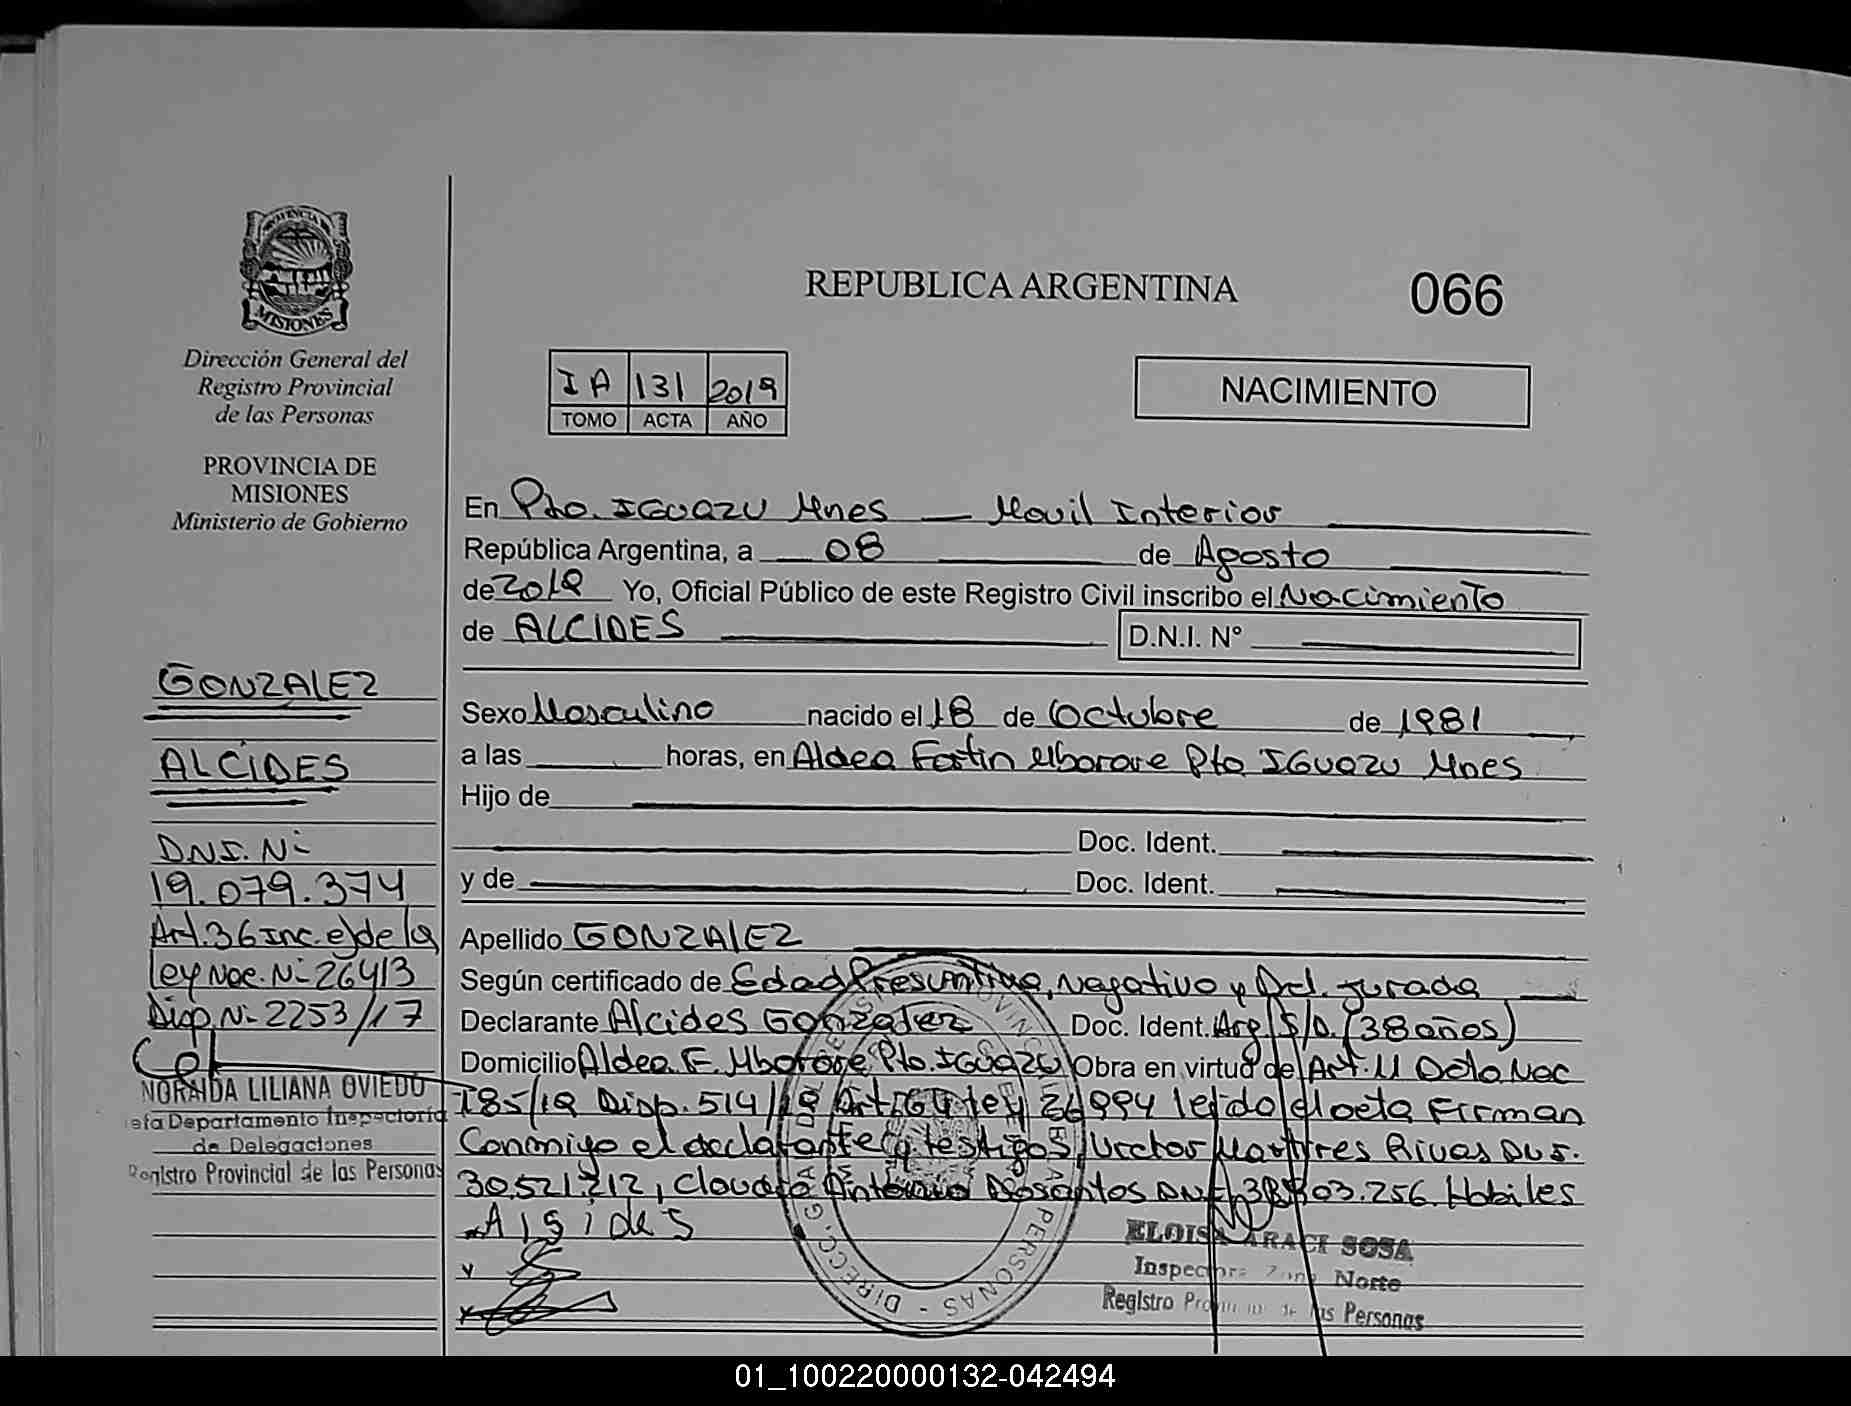 PROVINCIA DE
MISIONES
Dirección General del
Registro Provincial
de las Personas
PROVINCIA DE
MISIONES
Ministerio de Gobierno
GONZALEZ
ALCIDES
DNI. Nº
19.079.374
Art. 36 Inc. e) de la
Ley Nac. Nº 26413
Disp. Nº 2253/17
NORAIDA LILIANA OVIEDO
Jefa Departamento Inspectoría
de Delegaciones
Registro Provincial de las Personas
REPUBLICA ARGENTINA
066
IA 131 2019
TOMO ACTA AÑO
NACIMIENTO
En Pto. IGUAZU Mnes — Movil Interior
República Argentina, a 08 de Agosto
de 2019 Yo, Oficial Público de este Registro Civil inscribo el Nacimiento
de ALCIDES D.N.I. N°
Sexo Masculino nacido el 18 de Octubre de 1981
a las horas, en Aldea Fortin Mborore Pto IGUAZU Mnes
Hijo de
Doc. Ident.
y de Doc. Ident.
Apellido GONZALEZ
Según certificado de Edad Presuntiva, Negativo y Decl. Jurada
Declarante Alcides Gonzalez Doc. Ident. Arg S/D. (38 años)
Domicilio Aldea F. Mborore Pto. IGUAZU Obra en virtud de Art. 11 Dcto Nac
185/19 Disp. 514/19 Art. Ley 26994 leido el acta Firman
Conmigo el declarante y testigos, Martires Rivas DNI.
30.521.212, Claudio Antonio Dosantos DNI 38. 03.256 Habiles
Alsides
ELOISA ARACI SOSA
Inspectora Zona Norte
Registro Provincial de las Personas
01_100220000132-042494